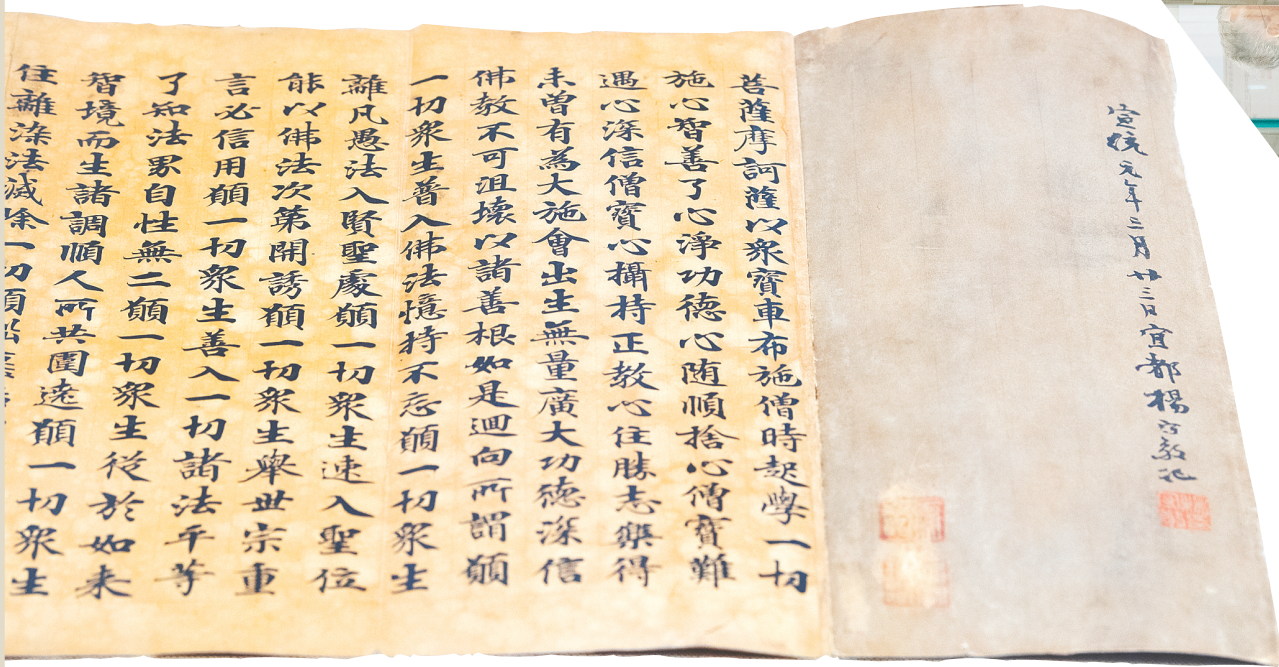 宣統元年三月廿三日宜都楊守敬記
菩薩摩訶薩以衆寶車布施僧時起學一切
施心智善了心淨功德心随順捨心僧寶難
遇心深信僧寶心攝持正教心住勝志樂得
未曽有為大施會出生無量廣大功德深信
佛教不可沮壊以諸善根如是迴向所謂願
一切衆生普入佛法憶持不忘願一切衆生
離凡愚法入賢聖處願一切衆生速入聖位
能以佛法次第開誘願一切衆生舉世宗重
言必信用願一切衆生善入一切諸法平等
了知法界自性無二願一切衆生從於如来
智境而生諸調順人所共圍遶願一切衆生
住離染法滅除一切